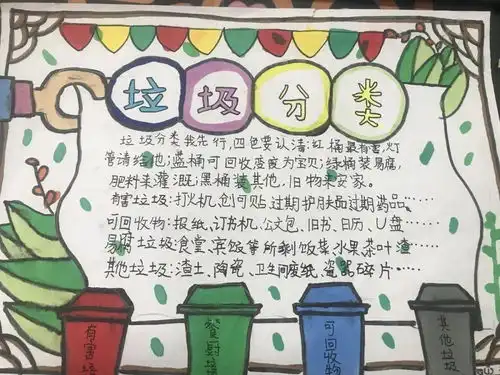 垃圾分类
垃圾分类我先行,四色要认清;红桶最有害,灯
管请给他;蓝桶可回收,废变为宝贝;绿桶装易腐,
肥料来灌溉;黑桶装其他,旧物来安家。
有害垃圾:打火机、创可贴、过期护肤品过期药品……
可回收物:报纸、订书机、公文包、旧书、日历、U盘
易腐垃圾:食堂、宾饭等所剩饭菜、水果、茶叶渣……
其他垃圾:渣土、陶瓷、卫生间废纸、瓷瓷碎片……
有害垃圾
餐厨垃圾
可回收物
其他垃圾